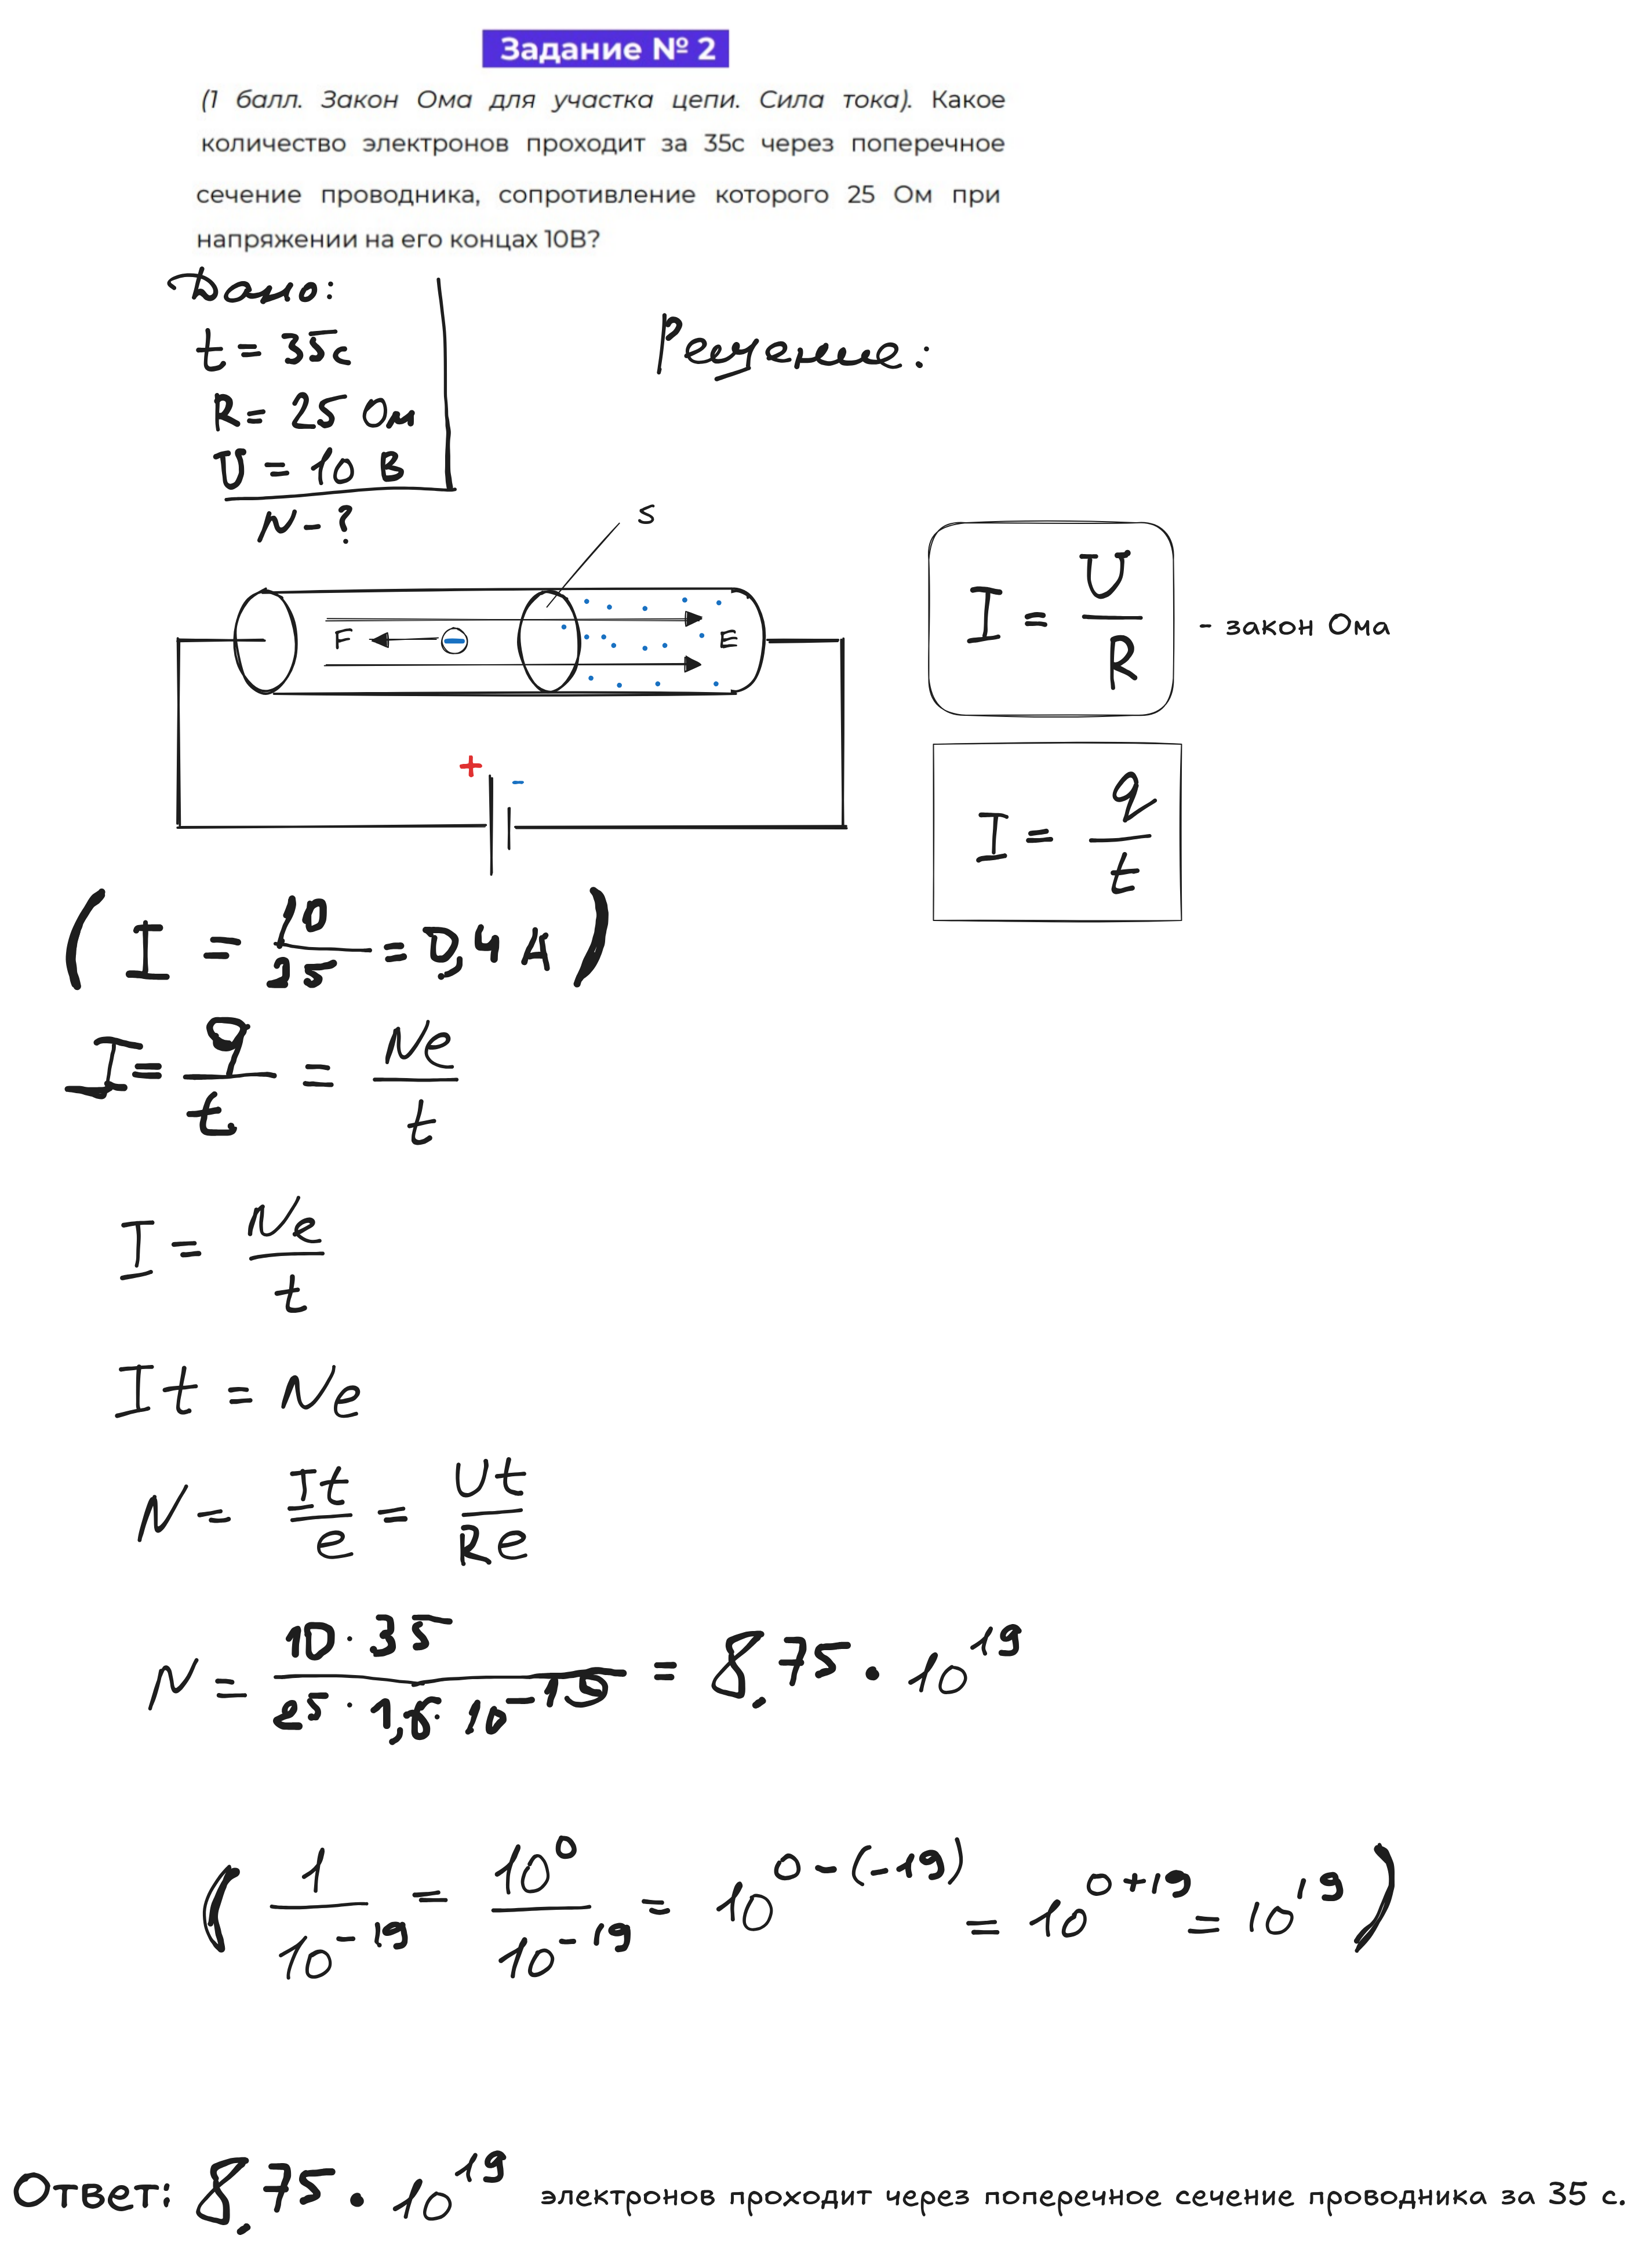 Задание № 2
(1 балл. Закон Ома для участка цепи. Сила тока). Какое
количество электронов проходит за 35с через поперечное
сечение проводника, сопротивление которого 25 Ом при
напряжении на его концах 10В?
Дано:
t = 35с
R = 25 Ом
U = 10 В
N - ?
Решение:
S
F
E
+ -
I = U/R - закон Ома
I = q/t
( I = 10/25 = 0,4 А )
I = q/t = Ne/t
I = Ne/t
It = Ne
N = It/e = Ut/Re
N = 10 · 35 / 25 · 1,6 · 10^-19 = 8,75 · 10^19
( 1/10^-19 = 10^0/10^-19 = 10^0-(-19) = 10^0+19 = 10^19 )
Ответ: 8,75 · 10^19 электронов проходит через поперечное сечение проводника за 35 с.